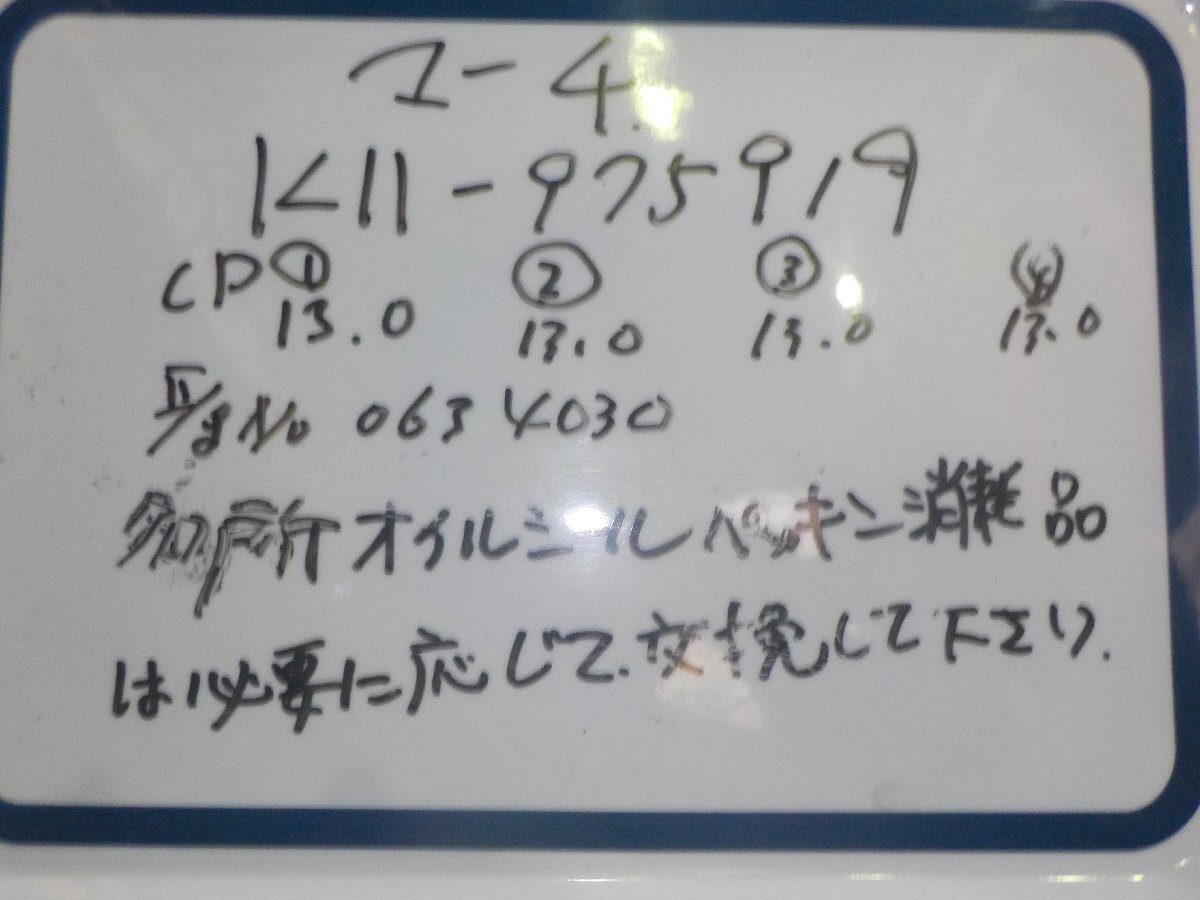 ユー4.
K11-975919
CP ① ② ③ ④
13.0 13.0 13.0 13.0
No 0634030
各所オイルシールパッキン消耗品
は必要に応じて.交換して下さい.